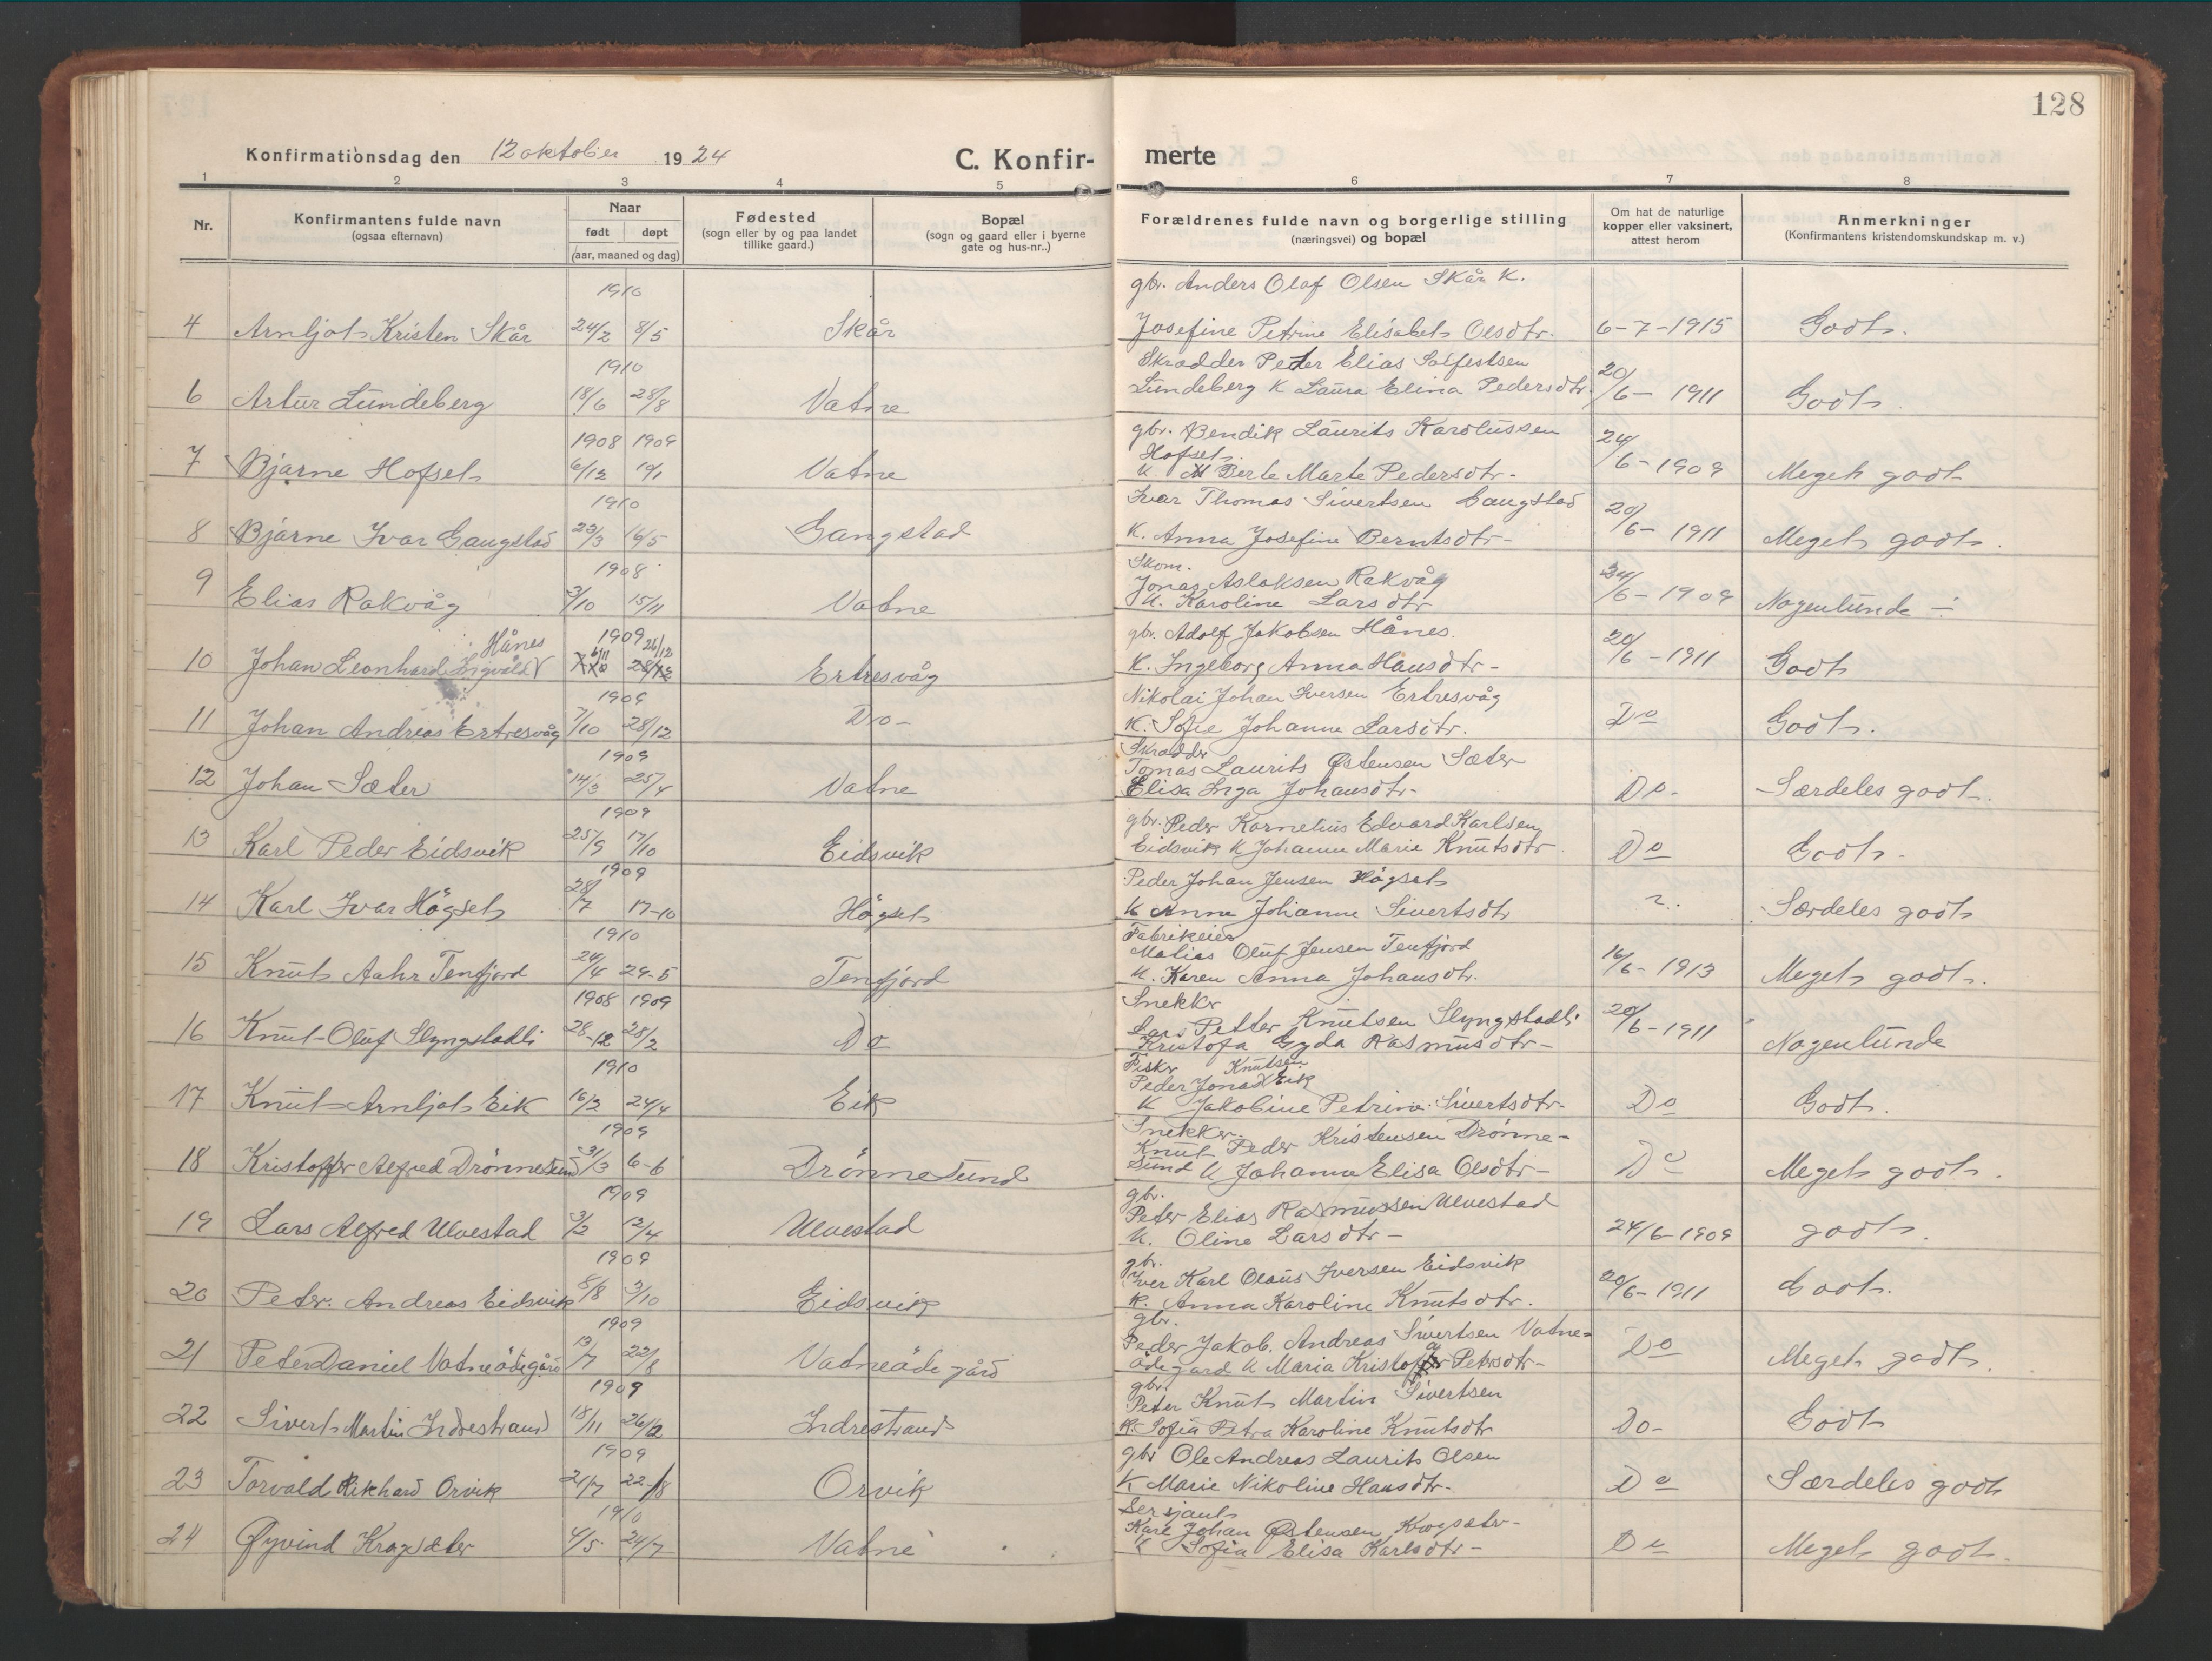 128
Konfirmationsdag den 12 oktober 1924
C. Konfir- merte
1 2 3 4 5 6 7 8
Nr.
Konfirmantens fulde navn
(ogsaa efternavn)
Naar
født døpt
(aar, maaned og dag)
Fødested
(sogn eller by og paa landet
tillike gaard.)
Bopæl
(sogn og gaard eller i byerne
gate og hus-nr..)
Forældrenes fulde navn og borgerlige stilling
(næringsvei) og bopæl
Om hat de naturlige
kopper eller vaksinert,
attest herom
Anmerkninger
(Konfirmantens kristendomskundskap m. v.)
1910 gbr. Anders Olaf Olsen Skår K.
4 Arnljot Kristen Skår 24/2 8/5 Skår Josefine Petrine Elisabet Olsdtr. 6-7-1915 Godt.
1910 Skrædder Peter Elias Salfestsen
6 Artur Lundeberg 18/6 28/8 Vatne Lundeberg K Laura Elina Pedersdtr. 20/6-1911 Godt.
1908 1909 gbr. Bendik Laurits Karolussen
Hofset
7 Bjarne Hofset 6/12 10/1 Vatne K Berte Marte Pedersdtr- 24/6-1909 Meget godt
1910 Ivar Thomas Sivertsen Gangstad
8 Bjarne Ivar Gangstad 23/3 16/5 Gangstad K. Anna Josefine Berntsdtr- 20/6-1911 Meget godt.
1908 Skom.
Jonas Aslaksen Rakvåg
9 Elias Rakvåg 3/10 15/11 Vatne K. Karoline Larsdtr 24/6-1909 Nogenlunde ÷
Hånes 1909 6/11 26/12 gbr. Adolf Jakobsen Hånes.
10 Johan Leonhard Ingvald 28/12 Ertresvåg K. Ingeborg Anna Hansdtr- 20/6-1911 Godt
1909 Nikolai Johan Iversen Ertresvåg
11 Johan Andreas Ertresvåg 7/10 28/12 Do- K. Sofie Johanne Larsdtr. Do Godt.
1909 Skrædder
Tomas Laurits Østensen Sæter
12 Johan Sæter 14/3 25/4 Vatne Elisa Inga Johansdtr- Do- Særdeles godt.
1909 gbr. Peder Kornelius Edvard Karlsen
13 Karl Peder Eidsvik 25/9 17/10 Eidsvik Eidsvik K Johanne Marie Knutsdtr. Do Godt-
1909 Peder Johan Jensen Högset
14 Karl Ivar Högset 28/7 17-10 Högset K Anne Johanne Sivertsdtr ?.. Særdeles godt
1910 Fabrikeier
Matias Oluf Jensen Tenfjord
15 Knut Aahr Tenfjord 24/4 29-5 Tenfjord K. Karen Anna Johansdtr. 16/6-1913 Meget godt.
1908 1909 Snekker
Lars Petter Knutsen Slyngstadli
16 Knut Oluf Slyngstadli 28-12 28/2 Do Kristofa Gyda Rasmusdtr- 20/6-1911 Nogenlunde
1910 Fisker Knutsen
Peder Jonas Eik
17 Knut Arnljot Eik 16/2 24/4 Eik K Jakobine Petrine Sivertsdtr- Do Godt.
1909 Snekker.
Knut Peder Kristensen Drønne-
18 Kristoffer Alfred Drönnesund 31/3 6-6 Drönnesund sund K Johanna Elisa Olsdtr- Do Meget godt.
1909 gbr.
Peter Elias Rasmussen Ulvestad
19 Lars Alfred Ulvestad 3/2 12/4 Ulvestad K. Oline Larsdtr- 24/6-1909 godt.
1909 gbr.
Iver Karl Olaus Iversen Eidsvik
20 Peter. Andreas Eidsvik 8/8 3/10 Eidsvik K. Anna Karoline Knutsdtr. 20/6-1911 Godt.
1909 gbr.
Peder Jakob. Andreas Sivertsen Vatne=
21 Peter Daniel Vatneödegård 13/7 22/8 Vatneödegård ödegard K Maria Kristoffa Petersdtr- Do Meget godt.
1909 gbr.
Peter Knut Martin Sivertsen
22 Sivert Martin Indrestrand 18/11 26/12 Indrestrand K. Sofia Petra Karoline Knutsdtr Do- Godt
1909 gbr Ole Andreas Laurits Olsen
23 Torvald Rikhard Orvik 21/7 22/8 Orvik K Marie Nikoline Hansdtr- Do Særdeles godt
1910 Sersjant
Karl Johan Østensen Krogsæter-
24 Øyvind Krogsæter 4/5 24/7 Vatne K Sofia Elisa Karlsdtr- Do Meget godt.